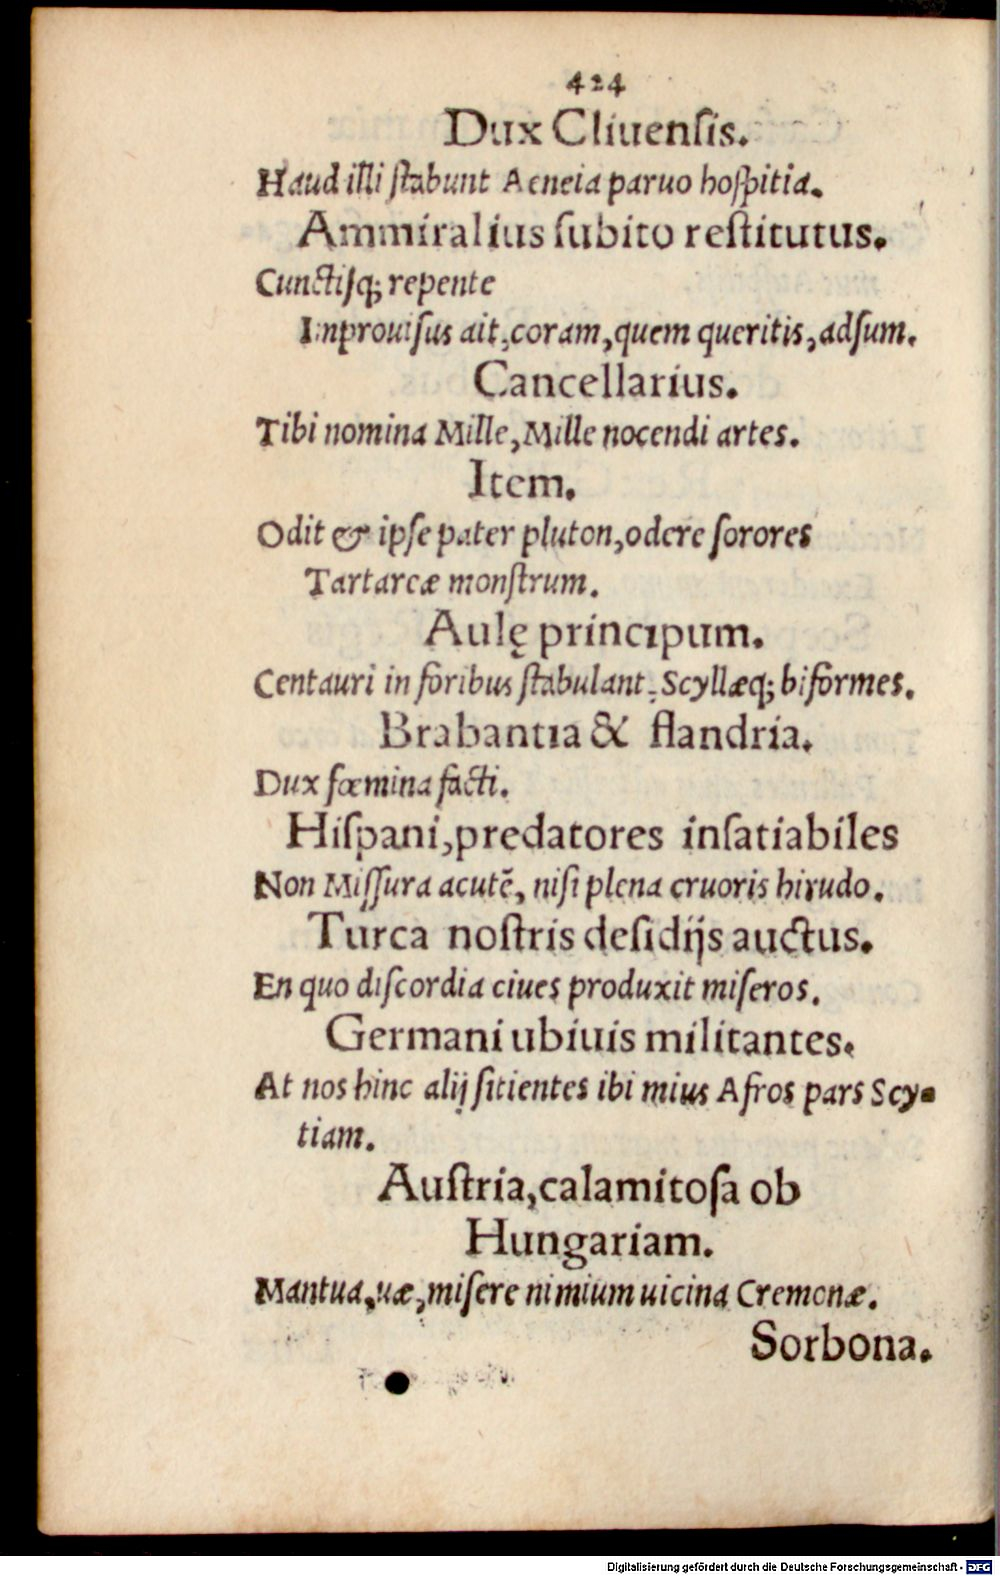 424
Dux Cliuenſis.
Haud illi ſtabunt Aeneia paruo hoſpitia.
Ammiralius ſubito reſtitutus.
Cunctiſq; repente
Inprouiſus ait, coram, quem queritis, adſum.
Cancellarius.
Tibi nomina Mille, Mille nocendi artes.
Item.
Odit & ipſe pater pluton, odere ſorores
Tartareæ monſtrum.
Aulę principum.
Centauri in foribus ſtabulant, Scyllæq; biformes.
Brabantia & flandria.
Dux fœmina facti.
Hiſpani, predatores inſatiabiles
Non Miſſura acutē, niſi plena cruoris hirudo.
Turca noſtris deſidijs auctus.
En quo diſcordia ciues produxit miſeros.
Germani ubiuis militantes.
At nos hinc alij ſitientes ibimius Afros pars Scy-
tiam.
Auſtria, calamitoſa ob
Hungariam.
Mantua, uæ, miſere nimium uicina Cremonæ.
Sorbona.
Digitalisierung gefördert durch die Deutsche Forschungsgemeinschaft - DFG